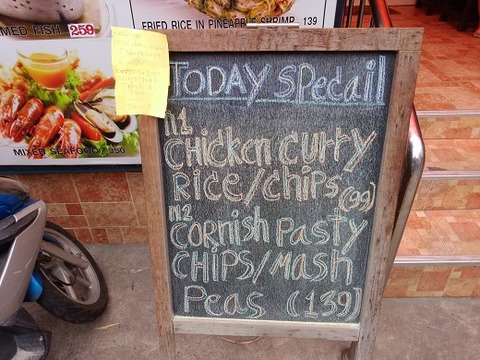 MED FISH 259
FRIED RICE IN PINEAPPLE SHRIMP 139
MIXED SEAFOOD 350
TODAY SPECAIL
n1
CHICKEN CURRY
RICE/CHIPS (99)
n2
CORNISH PASTY
CHIPS/MASH
PEAS (139)